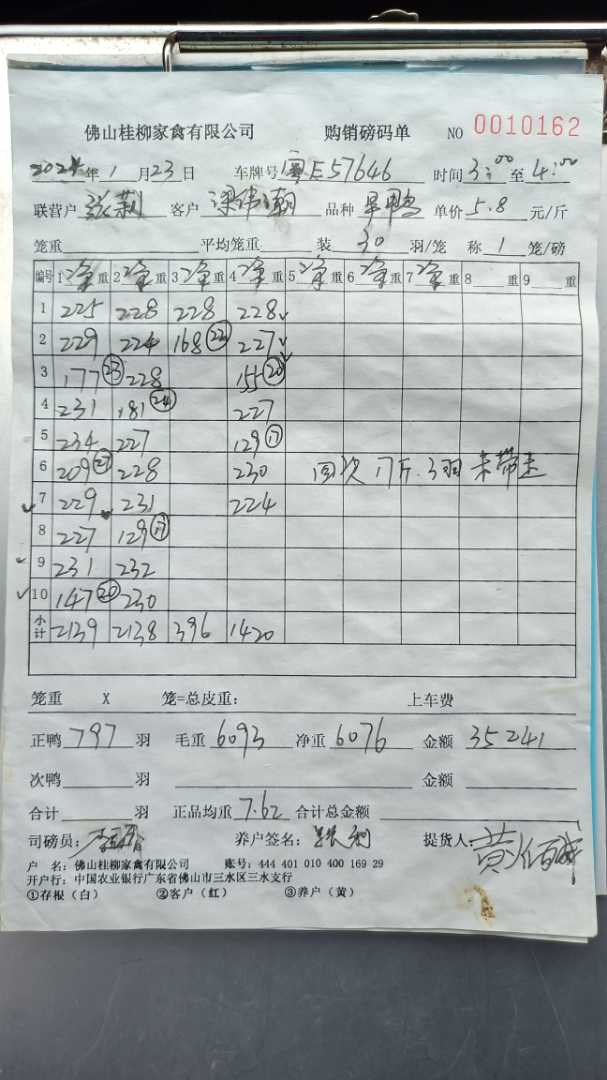 佛山桂柳家禽有限公司 购销磅码单 NO 0010162
2024年1月23日 车牌号粤E57646 时间3:00至4:00
联营户 客户梁伟潮 品种 单价5.8元/斤
笼重 平均笼重 装30羽/笼 称1笼/磅
编号 1净重 2净重 3净重 4净重 5净重 6净重 7净重 8 重 9 重
1 225 228 228 228
2 229 224 168㉒ 227
3 177㉓ 228 155⑳
4 231 181㉔ 227
5 234 227 129⑰
6 209㉗ 228 230 回次17斤.3羽未带走
7 229 231 224
8 227 129⑰
9 231 232
10 147⑳ 230
小计 2139 2138 396 1420
笼重 X 笼=总皮重: 上车费
正鸭797羽 毛重6093 净重6076 金额35241
次鸭 羽 金额
合计 羽 正品均重7.62 合计总金额
司磅员: 养户签名: 提货人:
户 名:佛山桂柳家禽有限公司 账号:444 401 010 400 169 29
开户行:中国农业银行广东省佛山市三水区三水支行
①存根(白) ②客户(红) ③养户(黄)